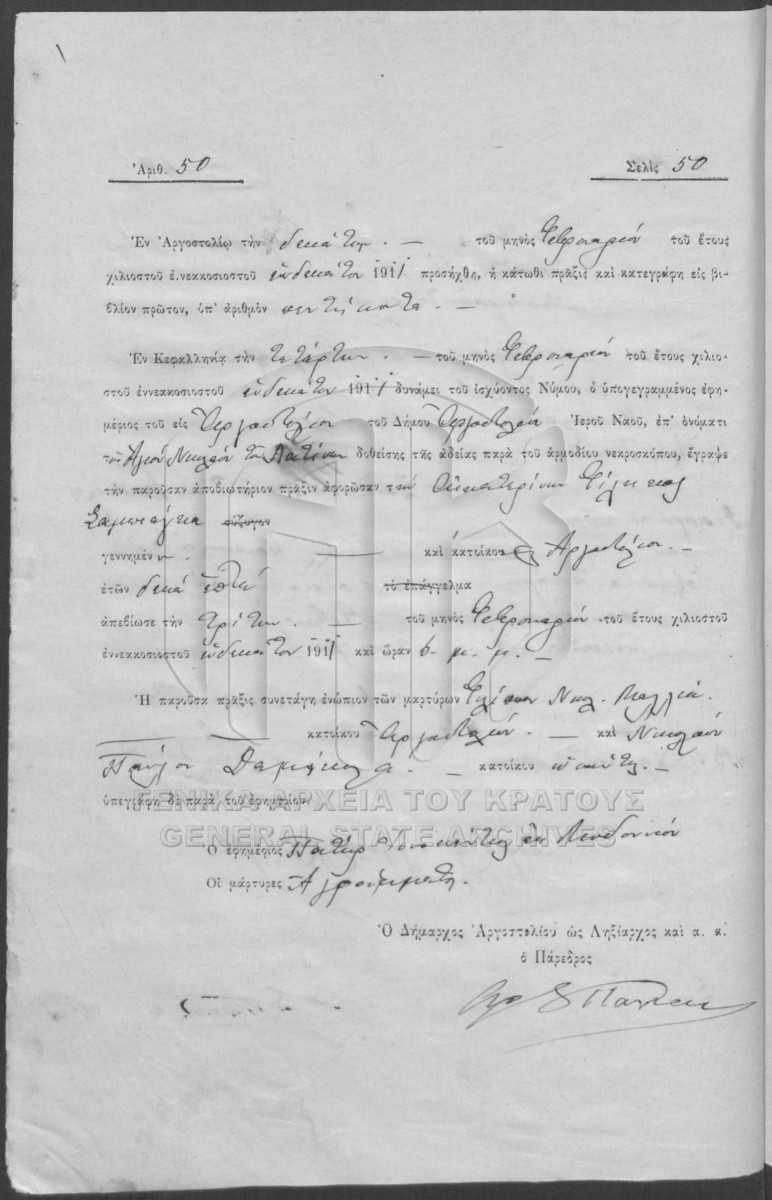 Ἀριθ. 50
Σελὶς 50
Ἐν Ἀργοστολίῳ τὴν δεκάτην. — τοῦ μηνὸς Φεβρουαρίου τοῦ ἔτους
χιλιοστοῦ ἐννεακοσιοστοῦ ἑνδεκάτου 1911 προσήχθη, ἡ κάτωθι πρᾶξις καὶ κατεγράφη εἰς βι-
βλίον πρῶτον, ὑπ' ἀριθμὸν πεντήκοντα. —
Ἐν Κεφαλληνίᾳ τὴν τετάρτην. — τοῦ μηνὸς Φεβρουαρίου τοῦ ἔτους χιλιο-
στοῦ ἐννεακοσιοστοῦ ἑνδεκάτου 1911 δυνάμει τοῦ ἰσχύοντος Νόμου, ὁ ὑπογεγραμμένος ἐφη-
μέριος τοῦ εἰς Ἀργοστόλιον τοῦ Δήμου Ἀργοστολίου Ἱεροῦ Ναοῦ, ἐπ' ὀνόματι
τοῦ Ἁγίου Νικολάου τῶν Λατίνων δοθείσης τῆς ἀδείας παρὰ τοῦ ἁρμοδίου νεκροσκόπου, ἔγραψε
τὴν παροῦσαν ἀποβιωτήριον πρᾶξιν ἀφορῶσαν τὴν Αἰκατερίναν
σύζυγον
γεννημέν — καὶ κατοίκου Ἀργοστολίου. —
ἐτῶν δεκαεπτά τὸ ἐπάγγελμα
ἀπεβίωσε τὴν τρίτην. — τοῦ μηνὸς Φεβρουαρίου τοῦ ἔτους χιλιοστοῦ
ἐννεακοσιοστοῦ ἑνδεκάτου 1911 καὶ ὥραν 6. μ. μ. —
Ἡ παροῦσα πρᾶξις συνετάγη ἐνώπιον τῶν μαρτύρων Νικ.
κατοίκου Ἀργοστολίου. — καὶ Νικολάου
Παύλου — κατοίκου —
ὑπεγράφη δὲ παρὰ τοῦ ἐφημερίου
ΓΕΝΙΚΑ ΑΡΧΕΙΑ ΤΟΥ ΚΡΑΤΟΥΣ
GENERAL STATE ARCHIVES
Ὁ ἐφημέριος Πατὴρ
Οἱ μάρτυρες Ἀγράμματοι.
Ὁ Δήμαρχος Ἀργοστολίου ὡς Ληξίαρχος καὶ α. α.
ὁ Πάρεδρος